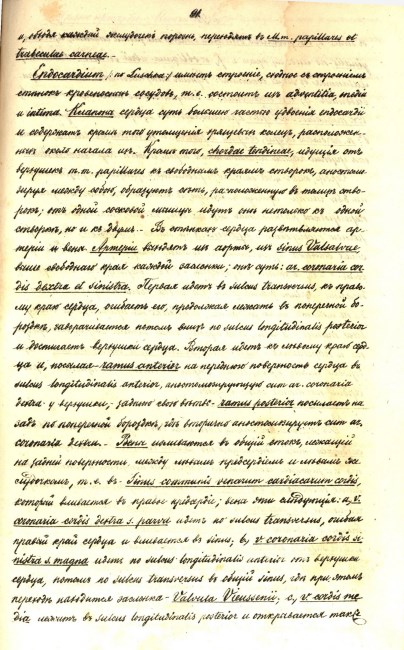 и, обходя каждый желудочек порознь, переходят въ M.m. papillares et
trabeculae carneae.-
Endocardium, (по Luschka) имѣетъ строеніе, сходное съ строеніемъ
стѣнокъ кровеносныхъ сосудовъ, т.е. состоитъ изъ adventitia, media
и intima. Клапаны сердца суть большею частью удвоенія endocardii
и содержатъ кромѣ того утолщенія хрящевыхъ колецъ, расположен-
ныхъ около начала ихъ. Кромѣ того, chordae tendineae, идущія отъ
верхушекъ m.m. papillares къ свободнымъ краямъ створокъ, анастомо-
зируя между собою, образуютъ сѣть, расположенную въ толщѣ ство-
рокъ; отъ одной сосковой мышцы идутъ онѣ не только къ одной
створкѣ, но и къ двумъ. - Въ стѣнкахъ сердца развѣтвляются ар-
теріи и вены. Артеріи выходятъ изъ аорты, изъ sinus Valsalvae,
выше свободнаго края каждой заслонки; онѣ суть: ar. coronaria cor-
dis dextra et sinistra. Первая идетъ въ sulcus transversus, къ право-
му краю сердца, огибаетъ его, продолжая лежать въ поперечной бо-
роздкѣ, заворачивается потомъ внизъ по sulcus longitudinalis posterior
и достигаетъ верхушки сердца. Вторая идетъ къ лѣвому краю серд-
ца и, посылая ramus anterior на переднюю поверхность сердца въ
sulcus longitudinalis anterior, анастомозирующую съ ar. coronaria
dextra у верхушки, заднюю свою вѣтвь- ramus posterior посылаетъ на-
задъ по поперечной бороздкѣ, гдѣ вторично анастомозируетъ съ ar.
coronaria dextra. - Вены изливаются въ общій стокъ, лежащій
на задней поверхности между лѣвымъ предсердіемъ и лѣвымъ же-
лудочкомъ, т.е. въ- Sinus communis venarum cardiacarum cordis,
который вливается въ правое предсердіе; вены эти слѣдующія: a, v.
coronaria cordis dextra s. parva идетъ по sulcus transversus, огибая
правый край сердца и вливается въ sinus; b, v. coronaria cordis si-
nistra s. magna идетъ по sulcus longitudinalis anterior отъ верхушки
сердца, потомъ по sulcus transversus въ общій sinus, гдѣ при этомъ
переходѣ находится заслонка- Valvula Vieussenii; c, v. cordis me-
dia лежитъ въ sulcus longitudinalis posterior и открывается также